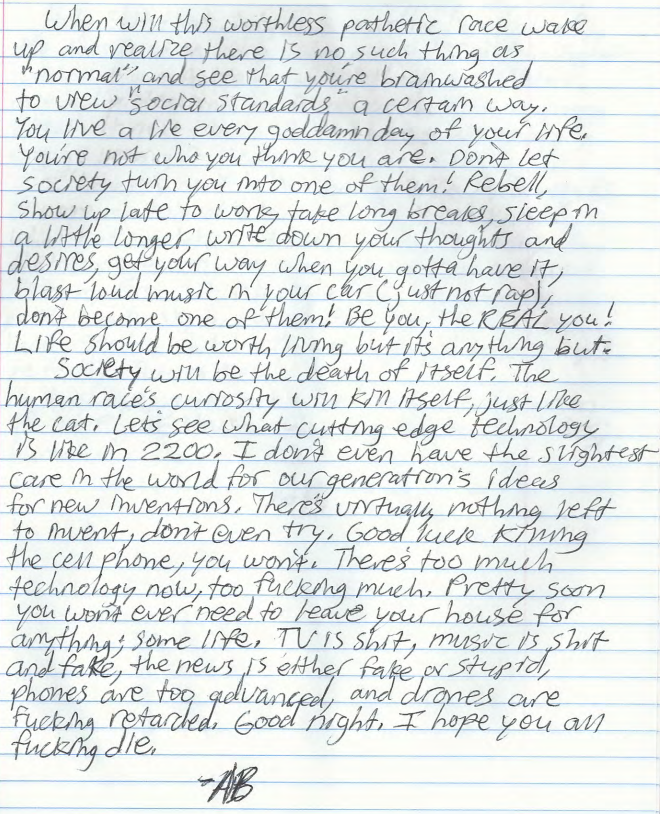 When will this worthless pathetic race wake
up and realize there is no such thing as
"normal" and see that you're brainwashed
to view "social standards" a certain way.
You live a lie every goddamn day of your life.
You're not who you think you are. Don't let
society turn you into one of them! Rebell,
show up late to work, take long breaks, sleep in
a little longer, write down your thoughts and
desires, get your way when you gotta have it,
blast loud music in your car (just not rap),
don't become one of them! Be you, the REAL you!
Life should be worth living but it's anything but.
Society will be the death of itself. The
human race's curiosity will kill itself, just like
the cat. Let's see what cutting edge technology
is like in 2200. I don't even have the slightest
care in the world for our generation's ideas
for new inventions. There's virtually nothing left
to invent, don't even try. Good luck killing
the cell phone, you won't. There's too much
technology now, too fucking much. Pretty soon
you won't ever need to leave your house for
anything; some life. TV is shit, music is shit
and fake, the news is either fake or stupid,
phones are too advanced, and drones are
fucking retarded. Good night. I hope you all
fucking die.
-AB